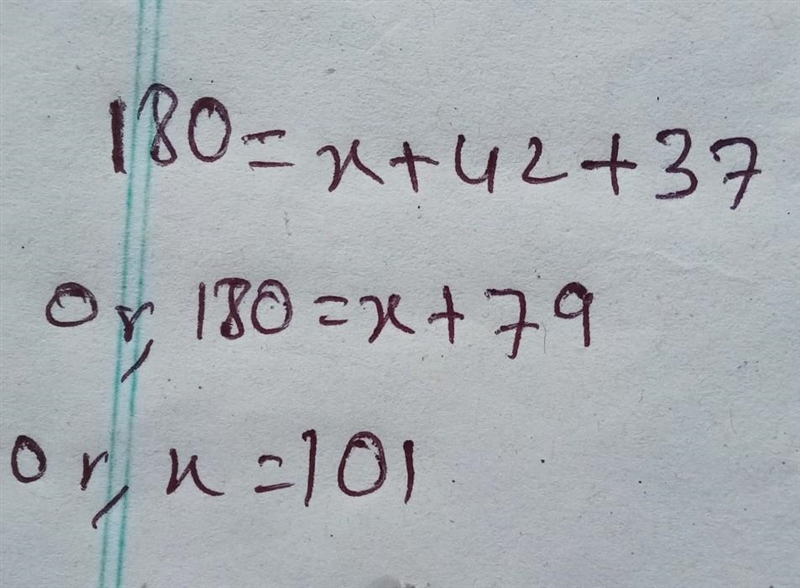 180 = x + 42 + 37
or, 180 = x + 79
or, x = 101